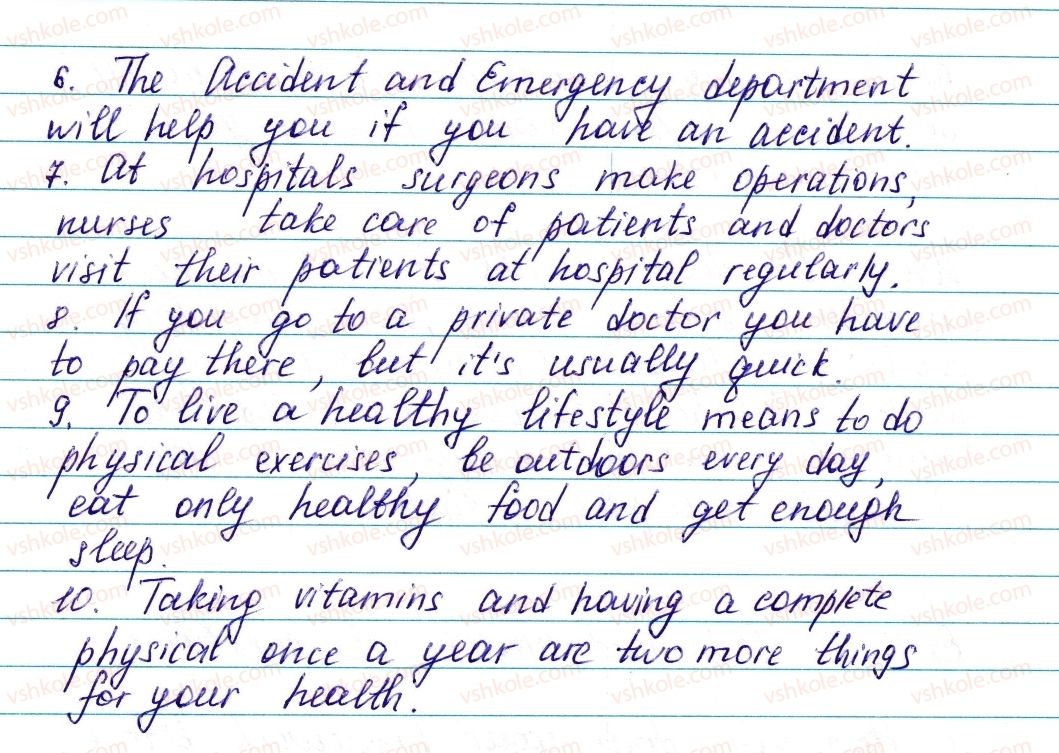 6. The Accident and Emergency department
will help you if you have an accident.
7. At hospitals surgeons make operations,
nurses take care of patients and doctors
visit their patients at hospital regularly.
8. If you go to a private doctor you have
to pay there, but it's usually quick.
9. To live a healthy lifestyle means to do
physical exercises, be outdoors every day,
eat only healthy food and get enough
sleep.
10. Taking vitamins and having a complete
physical once a year are two more things
for your health.